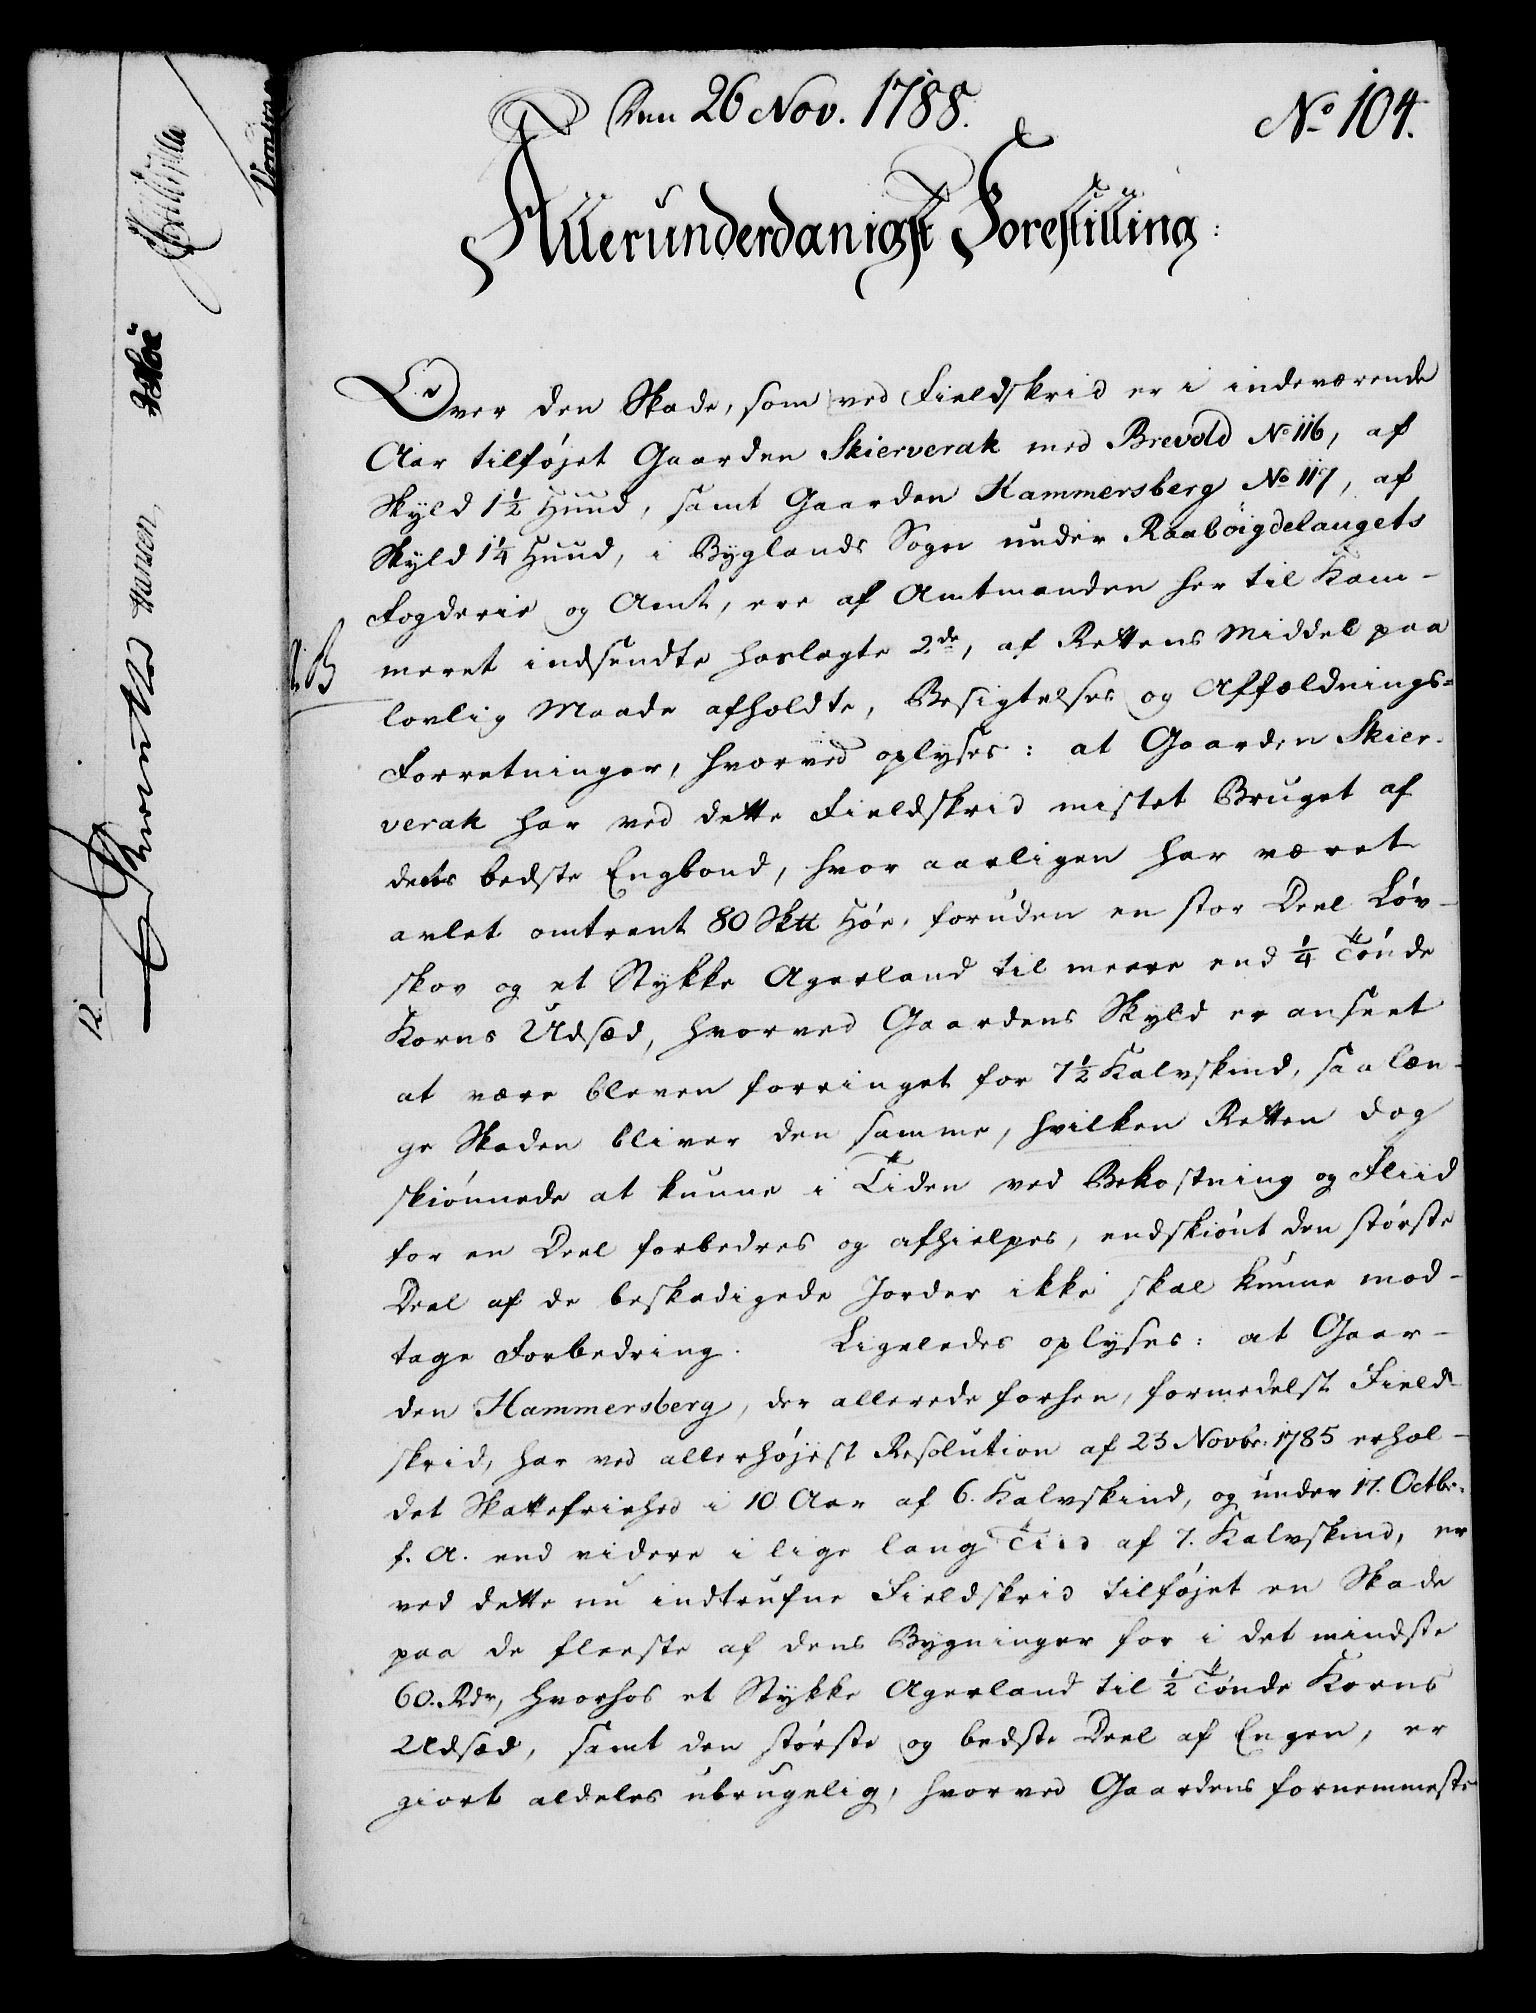 Den 26 Nov. 1788.
No 104.
Allerunderdanigst Forestilling:
Over den Skade, som ved Fieldskrid er i indeværende
Aar tilføjet Gaarden Skierverak med Brevold No 116, af
Skyld 1½ Huud, samt Gaarden Hammersberg No 117, af
Skyld 1¼ Huud, i Byglands Sogn under Raabøigdelaugets
Fogderie og Amt, ere af Amtmanden her til Kam-
meret indsendte hoslagte 2de, af Rettens Middel paa
lovlig Maade afholdte, Besigtelses og Affældnings-
Forretninger, hvorved oplyses: at Gaarden Skier-
verak har ved dette Fieldskrid mistet Bruget af
dets bedste Engbond, hvor aarligen har været
avlet omtrent 80 Sk℔ Høe, foruden en stor Deel Løv-
skov og et Stykke Agerland til meere end ¼ Tønde
Korns Udsæd, hvorved Gaardens Skyld er anseet
at være bleven forringet for 7½ Kalvskind, saa læn-
ge Skaden bliver den samme, hvilken Retten dog
skiønnede at kunne i Tiden ved Bekostning og Fliid
for en Deel forbedres og afhielpes, endskiønt den største
Deel af de beskadigede Jorder ikke skal kunne mod-
tage Forbedring. Ligeledes oplyses: at Gaar-
den Hammersberg, der allerede forhen, formedelst Field-
skrid, har ved allerhøjest Resolution af 23 Novbr. 1785 erhol-
det Skattefriehed i 10 Aar af 6. Kalvskind, og under 17. Octbr.
f. A. end videre i lige lang Tiid af 7. Kalvskind, er
ved dette nu indtrufne Fieldskrid tilføjet en Skade
paa de fleeste af dens Bygninger for i det mindste
60. Rdr, hvorhos et Stykke Agerland til ½ Tønde Korns
Udsæd, samt den største og bedste Deel af Engen, er
giort aldeles ubrugelig, hvorved Gaardens fornemmeste
12.
Hansen,